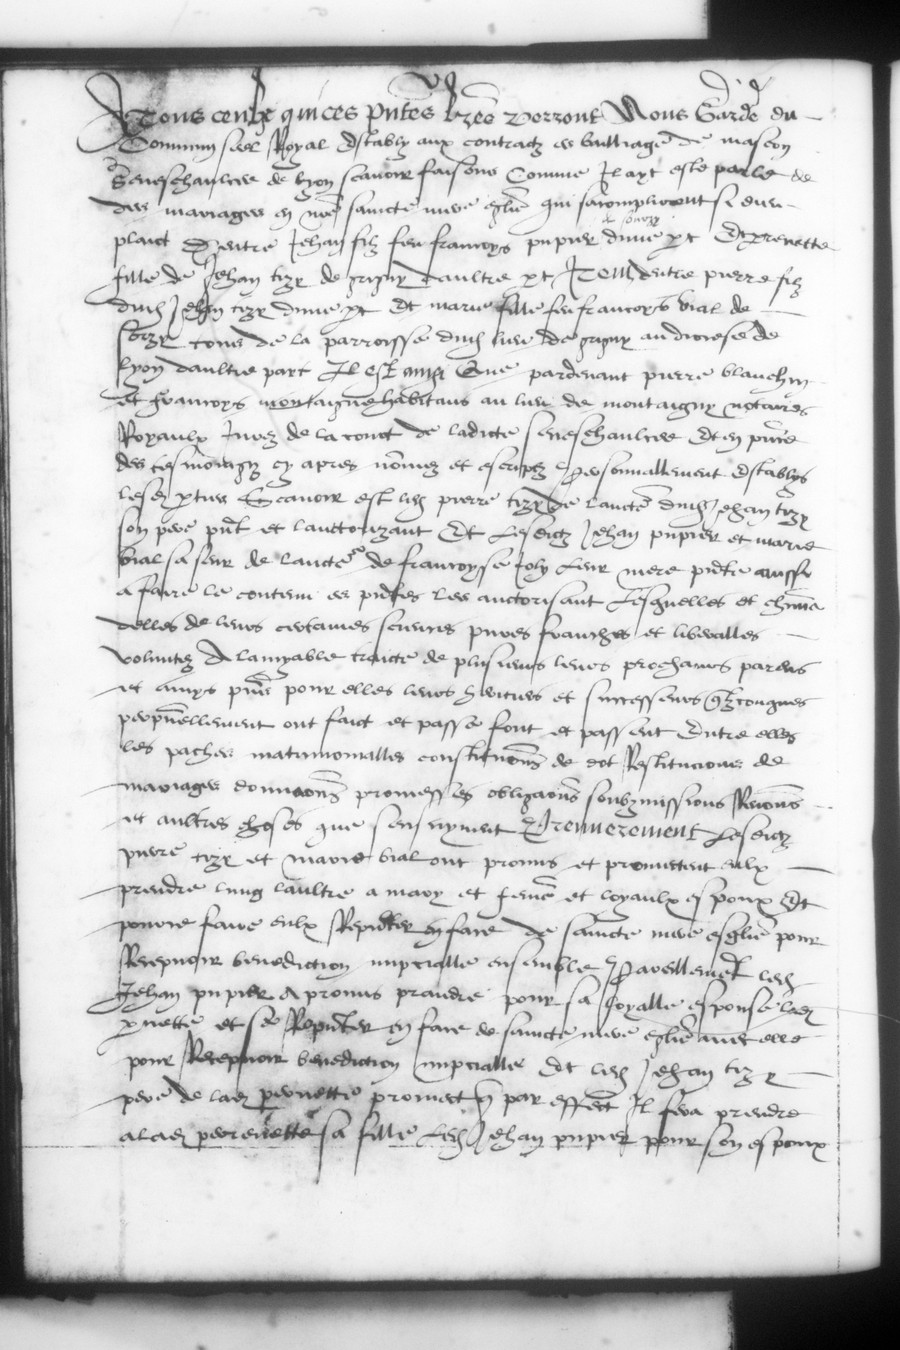 A Tous ceulx qui ces pntes lres verront Nous Garde du
Commun seel Royal Estably aux contractz es bailliage de mascon
Seneschaulcee de lyon scavoir faisons Comme Il ayt este parle de
des mariages en nre saincte mere esglise qui sacompliront si dieu
de sourzy
plaict Dentre Jehan filz feu francoys pupier dune pt Et perenette
fille de Jehan tizy de grigny daultre pt Item dentre pierre filz
dud Jehan tizy dune pt Et marie fille feu francoys vial de
tous de la parroisse dud lieu de grigny au diocese de
lyon daultre part Il est ainsi Que pardevant pierre blanchin
et francoys montaigne habitans au lieu de montaigny notaires
Royaulx Jurez de la court de ladicte seneschaulcee Et en pnce
des tesmoingz cy apres nommez et escriptz personnallement Establys
lesd pties Scavoir est led pierre tizy de laucte dud Jehan tizy
son pere pnt et lauctorizant Et Lesdictz Jehan pupier et marie
vial sa seur de laucte de francoyse Joly Leur mere pnte aussi
a faire le contenu es pntes les auctorisant Lesquelles et chune
delles de leurs certaines sciences pures franches et liberalles
voluntez A lamyable traicte de plusieurs leurs prochains parens
et amys pour elles leurs heritiers et successeurs qlzconques
perpetuellement ont faict et passe font et passent Entre elles
les paches matrimonialles constitutions de dot Restitucions de
mariages donnaons promesses obligaons soubzmissions Renons
et aultres choses que sensuyvent Premierement Lesdictz
pierre tizy et marie vial ont promis et promettent eulx
prendre lung laultre a mary et feme et loyaulx espoux Et
pouvre faire eulx Repnter en face de saincte mere esglise pour
Recepvoir benediction nupcialle ensemble Pareillement led
Jehan pupier a promis prandre pour sa loyalle espouse lad
pnette et se Repnter en face de saincte mere eglise avec elle
pour Recepvoir benediction nupcialle Et led Jehan tizy
pere de lad perenette promect q par effect Il fera prendre
a lad perenette sa fille Led Jehan pupier pour son espoux